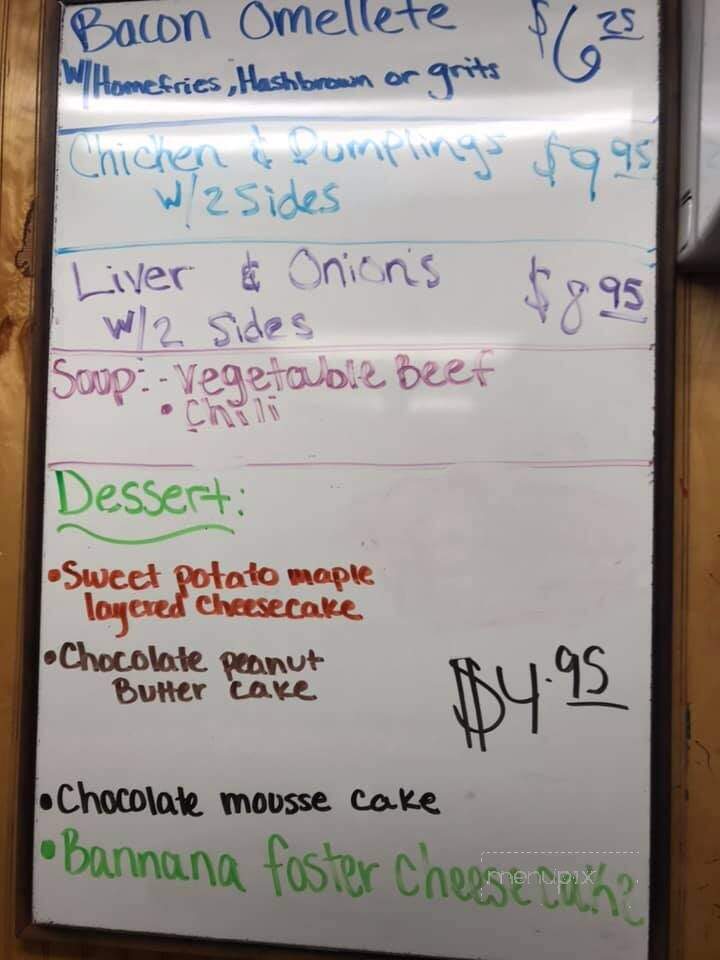 Bacon Omellete $6 25
W/Homefries, Hashbrown or grits
Chicken & Dumplings $9 95
W/2 Sides
Liver & Onion's $8 95
W/2 Sides
Soup: - Vegetable Beef
• Chili
Dessert:
• Sweet potato maple
layered cheesecake
• Chocolate peanut
Butter cake
$4.95
• Chocolate mousse cake
• Bannana foster cheesecake
menupix